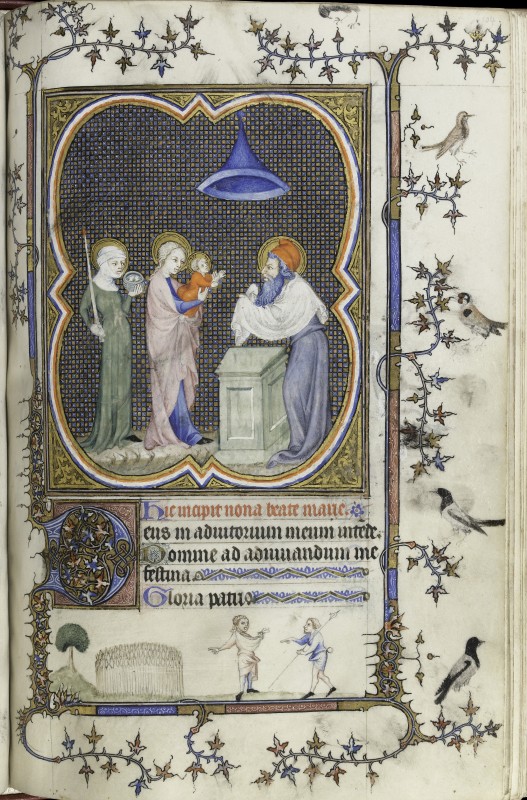 Hic incipit nona beate marie.
eus in adiutorium meum intende.
Domine ad adiuuandum me
festina
Gloria patri